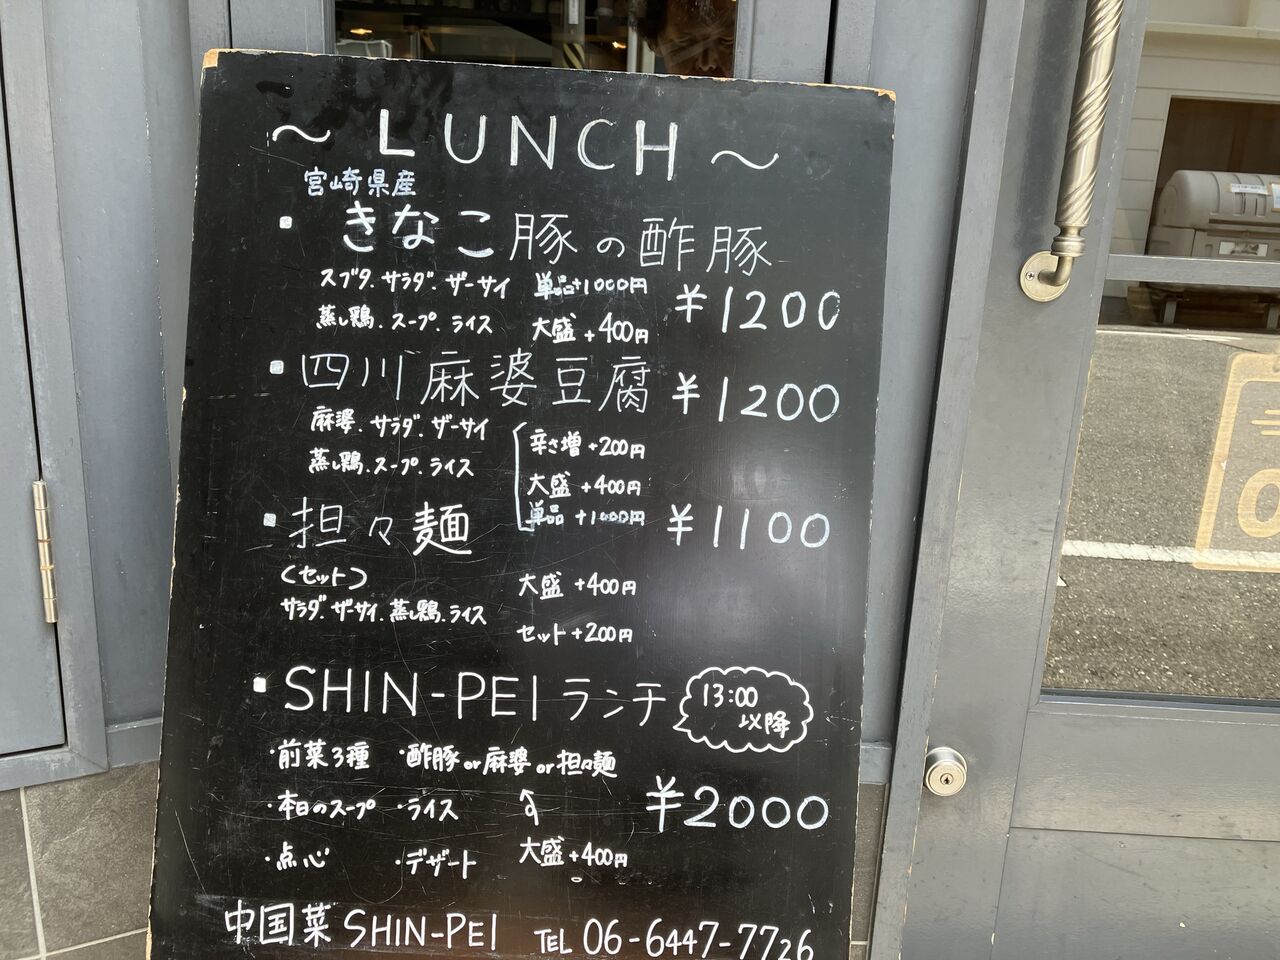 ～ LUNCH ～
宮崎県産
・きなこ豚の酢豚
スブタ.サラダ.ザーサイ 単品+1000円
蒸し鶏.スープ.ライス 大盛+400円 ¥1200
・四川麻婆豆腐 ¥1200
麻婆.サラダ.ザーサイ 辛さ増+200円
蒸し鶏.スープ.ライス 大盛+400円
単品+1000円
・担々麺 ¥1100
(セット) 大盛+400円
サラダ.ザーサイ.蒸し鶏.ライス セット+200円
・SHIN-PEIランチ 13:00
以降
・前菜3種 ・酢豚or麻婆or担々麺
・本日のスープ ・ライス ¥2000
・点心 ・デザート 大盛+400円
中国菜 SHIN-PEI TEL 06-6447-7726